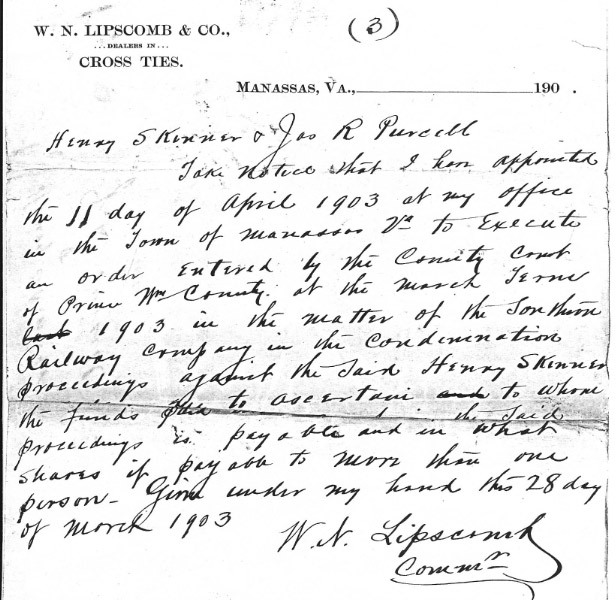 W. N. LIPSCOMB & CO.,
(3)
...DEALERS IN...
CROSS TIES.
MANASSAS, VA., 190 .
Henry Skinner & Jas R Purcell
Take notice that I have appointed
the 11 day of April 1903 at my office
in the Town of Manassas Va to Execute
an order Entered by the County Court
of Prince Wm County at the March Term
last 1903 in the matter of the Southern
Railway Company in the Condemnation
proceedings against the Said Henry Skinner
the funds paid to ascertain and to whom
in the Said
proceedings is payable and in what
Shares if payable to more than one
person - Given under my hand this 28 day
of March 1903
W. N. Lipscomb
Commr